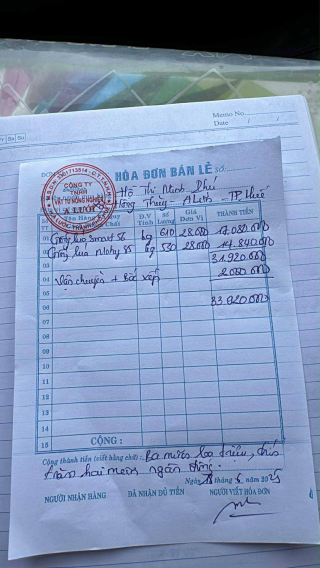 Memo No.
Date / /
HÓA ĐƠN BÁN LẺ Số:
CÔNG TY
TNHH
VẬT TƯ NÔNG NGHIỆP
A LƯỚI
Hồ Thị Minh Phú
Hồng Thủy - A Lưới - TP Huế
TT Tên Hàng Quy Chất Đ.V Tính Số Lượng Giá Đơn Vị THÀNH TIỀN
01 Giống lúa Smart 56 kg 610 28.000 17.080.000
02 Giống lúa 85 kg 530 28.000 14.840.000
03 31.920.000
04 Vận chuyển + Bốc xếp 2.000.000
05
06 33.920.000
07
08
09
10
11
12
13
14
15 CỘNG :
Cộng thành tiền (viết bằng chữ): Ba mươi ba triệu, chín
trăm hai mươi ngàn đồng.
Ngày tháng 6 năm 2025
NGƯỜI NHẬN HÀNG ĐÃ NHẬN ĐỦ TIỀN NGƯỜI VIẾT HÓA ĐƠN